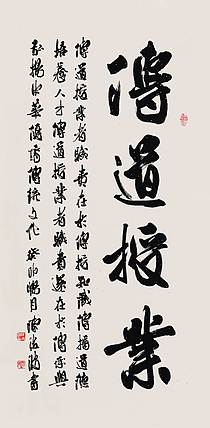 傳道授業
傳道授業者職責在於傳授知識傳揚道德
培養人才傳道授業者職責還在於傳承與
弘揚中華優秀傳統文化 癸卯 月 書